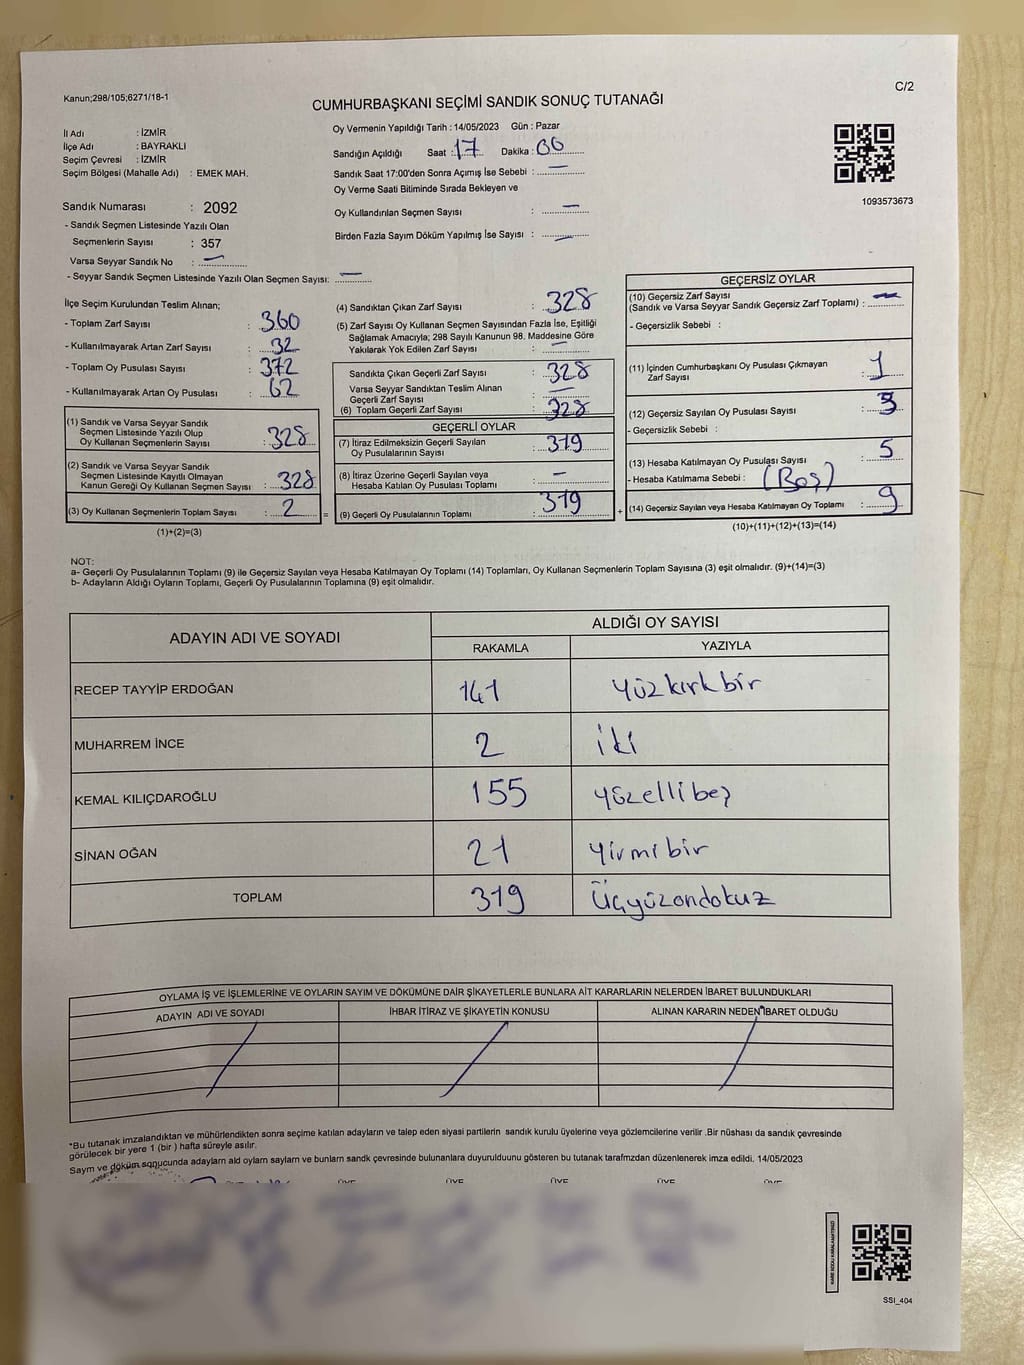 Kanun;298/105;6271/18-1
C/2
CUMHURBAŞKANI SEÇİMİ SANDIK SONUÇ TUTANAĞI
İl Adı : İZMİR
İlçe Adı : BAYRAKLI
Seçim Çevresi : İZMİR
Seçim Bölgesi (Mahalle Adı) : EMEK MAH.
Sandık Numarası : 2092
- Sandık Seçmen Listesinde Yazılı Olan
Seçmenlerin Sayısı : 357
Varsa Seyyar Sandık No : —
- Seyyar Sandık Seçmen Listesinde Yazılı Olan Seçmen Sayısı: —
Oy Vermenin Yapıldığı Tarih : 14/05/2023 Gün : Pazar
Sandığın Açıldığı Saat : 17 Dakika : 00
Sandık Saat 17:00'den Sonra Açımış İse Sebebi : —
Oy Verme Saati Bitiminde Sırada Bekleyen ve
Oy Kullandırılan Seçmen Sayısı : —
Birden Fazla Sayım Döküm Yapılmış İse Sayısı : —
1093573673
İlçe Seçim Kurulundan Teslim Alınan;
- Toplam Zarf Sayısı : 360
- Kullanılmayarak Artan Zarf Sayısı : 32
- Toplam Oy Pusulası Sayısı : 372
- Kullanılmayarak Artan Oy Pusulası : 62
(1) Sandık ve Varsa Seyyar Sandık
Seçmen Listesinde Yazılı Olup
Oy Kullanan Seçmenlerin Sayısı : 328
(2) Sandık ve Varsa Seyyar Sandık
Seçmen Listesinde Kayıtlı Olmayan
Kanun Gereği Oy Kullanan Seçmen Sayısı : 328
(3) Oy Kullanan Seçmenlerin Toplam Sayısı : 2
(1)+(2)=(3)
=
(4) Sandıktan Çıkan Zarf Sayısı : 328
(5) Zarf Sayısı Oy Kullanan Seçmen Sayısından Fazla İse, Eşitliği
Sağlamak Amacıyla; 298 Sayılı Kanunun 98. Maddesine Göre
Yakılarak Yok Edilen Zarf Sayısı : —
Sandıkta Çıkan Geçerli Zarf Sayısı : 328
Varsa Seyyar Sandıktan Teslim Alınan
Geçerli Zarf Sayısı : —
(6) Toplam Geçerli Zarf Sayısı : 328
GEÇERLİ OYLAR
(7) İtiraz Edilmeksizin Geçerli Sayılan
Oy Pusulalarının Sayısı : 319
(8) İtiraz Üzerine Geçerli Sayılan veya
Hesaba Katılan Oy Pusulası Toplamı : —
(9) Geçerli Oy Pusulalarının Toplamı : 319
+
GEÇERSİZ OYLAR
(10) Geçersiz Zarf Sayısı
(Sandık ve Varsa Seyyar Sandık Geçersiz Zarf Toplamı) : —
- Geçersizlik Sebebi :
(11) İçinden Cumhurbaşkanı Oy Pusulası Çıkmayan
Zarf Sayısı : 1
(12) Geçersiz Sayılan Oy Pusulası Sayısı : 3
- Geçersizlik Sebebi :
(13) Hesaba Katılmayan Oy Pusulası Sayısı : 5
- Hesaba Katılmama Sebebi : (Boş)
(14) Geçersiz Sayılan veya Hesaba Katılmayan Oy Toplamı : 9
(10)+(11)+(12)+(13)=(14)
NOT:
a- Geçerli Oy Pusulalarının Toplamı (9) ile Geçersiz Sayılan veya Hesaba Katılmayan Oy Toplamı (14) Toplamları, Oy Kullanan Seçmenlerin Toplam Sayısına (3) eşit olmalıdır. (9)+(14)=(3)
b- Adayların Aldığı Oyların Toplamı, Geçerli Oy Pusulalarının Toplamına (9) eşit olmalıdır.
ADAYIN ADI VE SOYADI
ALDIĞI OY SAYISI
RAKAMLA YAZIYLA
RECEP TAYYİP ERDOĞAN 141 Yüzkırkbir
MUHARREM İNCE 2 iki
KEMAL KILIÇDAROĞLU 155 yüzellibeş
SİNAN OĞAN 21 Yirmibir
TOPLAM 319 Üçyüzondokuz
OYLAMA İŞ VE İŞLEMLERİNE VE OYLARIN SAYIM VE DÖKÜMÜNE DAİR ŞİKAYETLERLE BUNLARA AİT KARARLARIN NELERDEN İBARET BULUNDUKLARI
ADAYIN ADI VE SOYADI İHBAR İTİRAZ VE ŞİKAYETİN KONUSU ALINAN KARARIN NEDEN İBARET OLDUĞU
*Bu tutanak imzalandıktan ve mühürlendikten sonra seçime katılan adayların ve talep eden siyasi partilerin sandık kurulu üyelerine veya gözlemcilerine verilir .Bir nüshası da sandık çevresinde
görülecek bir yere 1 (bir ) hafta süreyle asılır.
Sayım ve döküm sonucunda adayların ald oyların sayların ve bunların sandk çevresinde bulunanlara duyurulduunu gösteren bu tutanak tarafmzdan düzenlenerek imza edildi. 14/05/2023
ÜYE ÜYE ÜYE ÜYE ÜYE
SSI_404